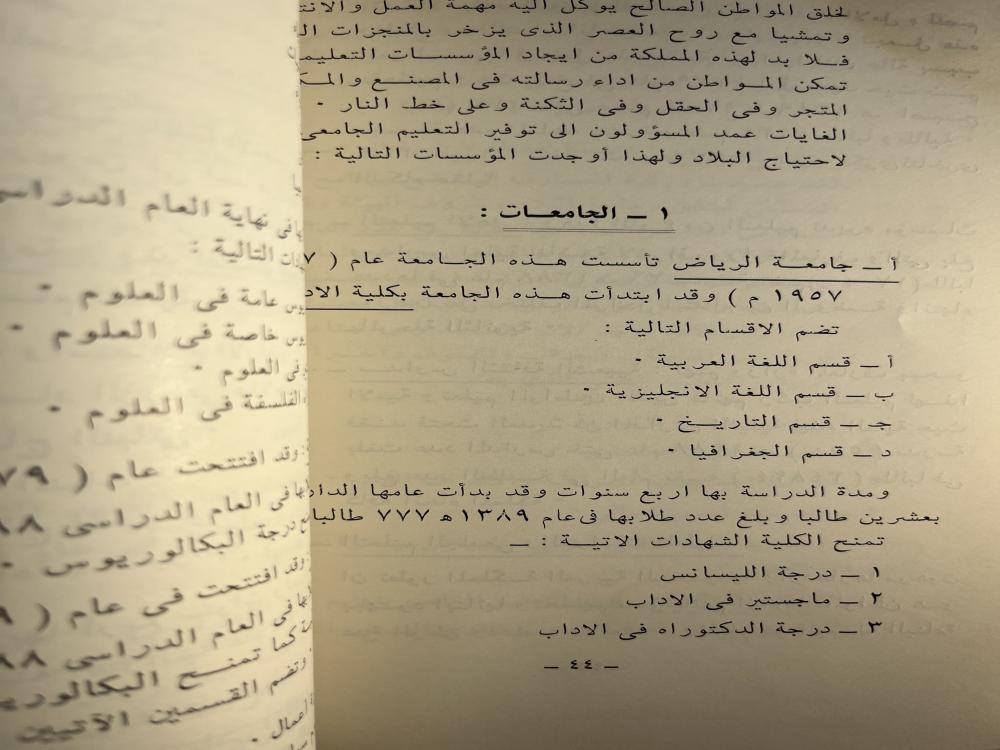 لخلق المواطن الصالح يوكل اليه مهمة العمل
وتمشيا مع روح العصر الذى يزخر بالمنجزات
فلا بد لهذه المملكة من ايجاد المؤسسات
تمكن المواطن من اداء رسالته فى المصنع
المتجر وفى الحقل وفى الثكنة وعلى خط النار ٠
الغايات عمد المسؤولون الى توفير التعليم
لاحتياج البلاد ولهذا أوجدت المؤسسات التالية :
١ ــ الجامعات :
أ ــ جامعة الرياض تأسست هذه الجامعة عام (
١٩٥٧ م ) وقد ابتدأت هذه الجامعة بكلية
تضم الاقسام التالية :
أ ــ قسم اللغة العربية ٠
ب ــ قسم اللغة الانجليزية ٠
جـ ــ قسم التاريخ ٠
د ــ قسم الجغرافيا ٠
ومدة الدراسة بها اربع سنوات وقد بدأت عامها
بعشرين طالبا وبلغ عدد طلابها فى عام ١٣٨٩ھ ٧٧٧ طالبا
تمنح الكلية الشهادات الاتية : ــ
١ ــ درجة الليسانس
٢ ــ ماجستير فى الاداب
٣ ــ درجة الدكتوراه فى الاداب
ــ ٤٤ ــ
نهاية العام
التالية :
عامة فى العلوم ٠
خاصة فى العلوم ٠
فى العلوم ٠
الفلسفة فى العلوم ٠
وقد افتتحت عام (
فى العام الدراسى
درجة البكالوريوس ٠
وقد افتتحت فى عام (
فى العام الدراسى
كما تمنح
وتضم القسمين الآتيين